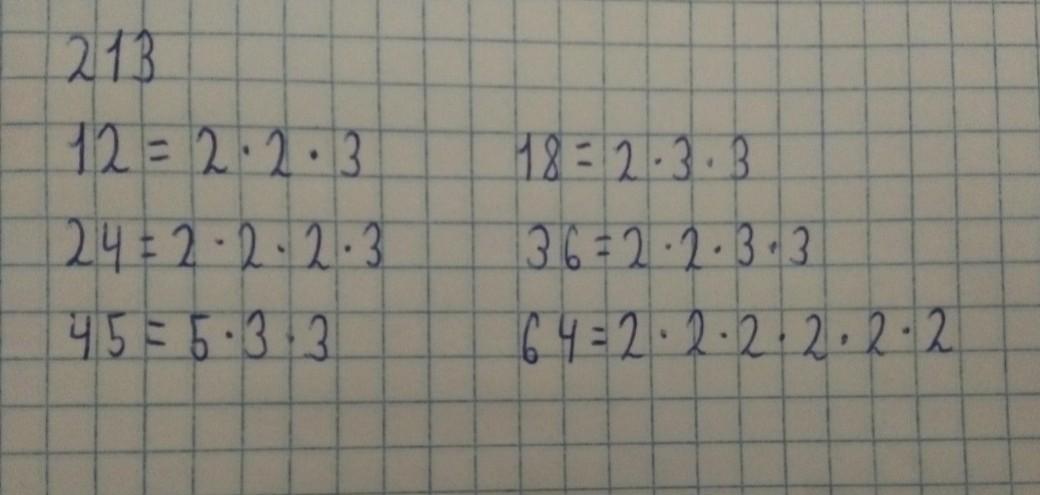 213
12 = 2 · 2 · 3 18 = 2 · 3 · 3
24 = 2 · 2 · 2 · 3 36 = 2 · 2 · 3 · 3
45 = 5 · 3 · 3 64 = 2 · 2 · 2 · 2 · 2 · 2